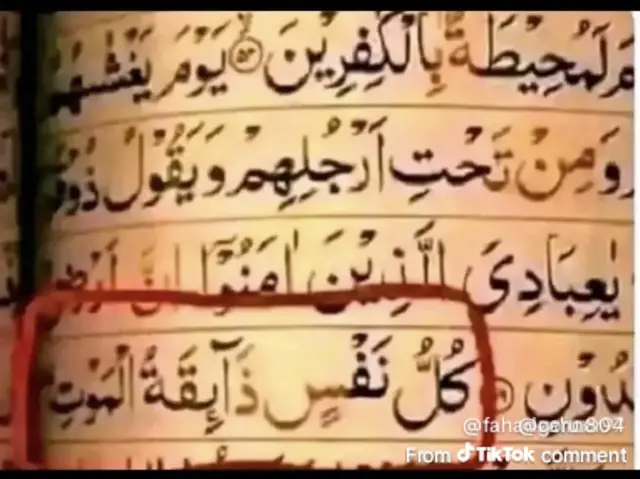 لَمُحِيْطَةٌۢ بِالْكٰفِرِيْنَ ۝۵۴ يَوْمَ يَغْشٰىهُمُ
وَمِنْ تَحْتِ اَرْجُلِهِمْ وَيَقُوْلُ
يٰعِبَادِيَ الَّذِيْنَ اٰمَنُوْۤا اِنَّ اَرْضِيْ
كُلُّ نَفْسٍ ذَآىِٕقَةُ الْمَوْتِ
From TikTok comment